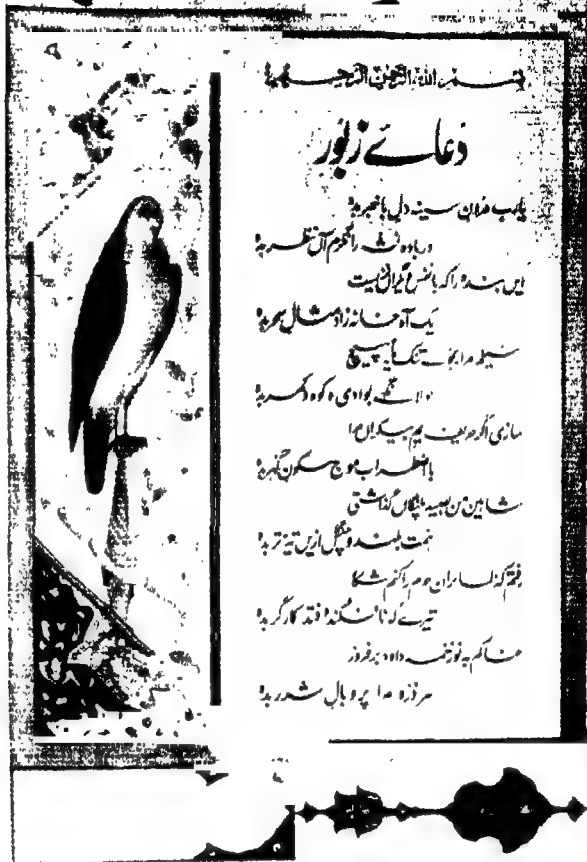 بسم اللہ الرحمٰن الرحیم
دعائے زبور
یارب درون سینہ دل باخبر بدہ
در بادہ نشہ را نگرم آں نظر بدہ
ایں بندہ را کہ با نفس دیگراں نزیست
یک آہ خانہ زاد مثال سحر بدہ
سیلم مرا بجوئے تنک مایہ مپیچ
جولانگہے بوادی و کوہ و کمر بدہ
سازی اگر حریف یم بیکراں مرا
با اضطراب موج سکون گہر بدہ
شاہین من بصید پلنگاں گذاشتی
ہمت بلند و چنگل ازیں تیز تر بدہ
رفتم کہ طائران حرم را کنم شکار
تیرے کہ نافگندہ فتد کارگر بدہ
خاکم بہ نور نغمۂ داود بر فروز
ہر ذرہ مرا پر و بال شرر بدہ